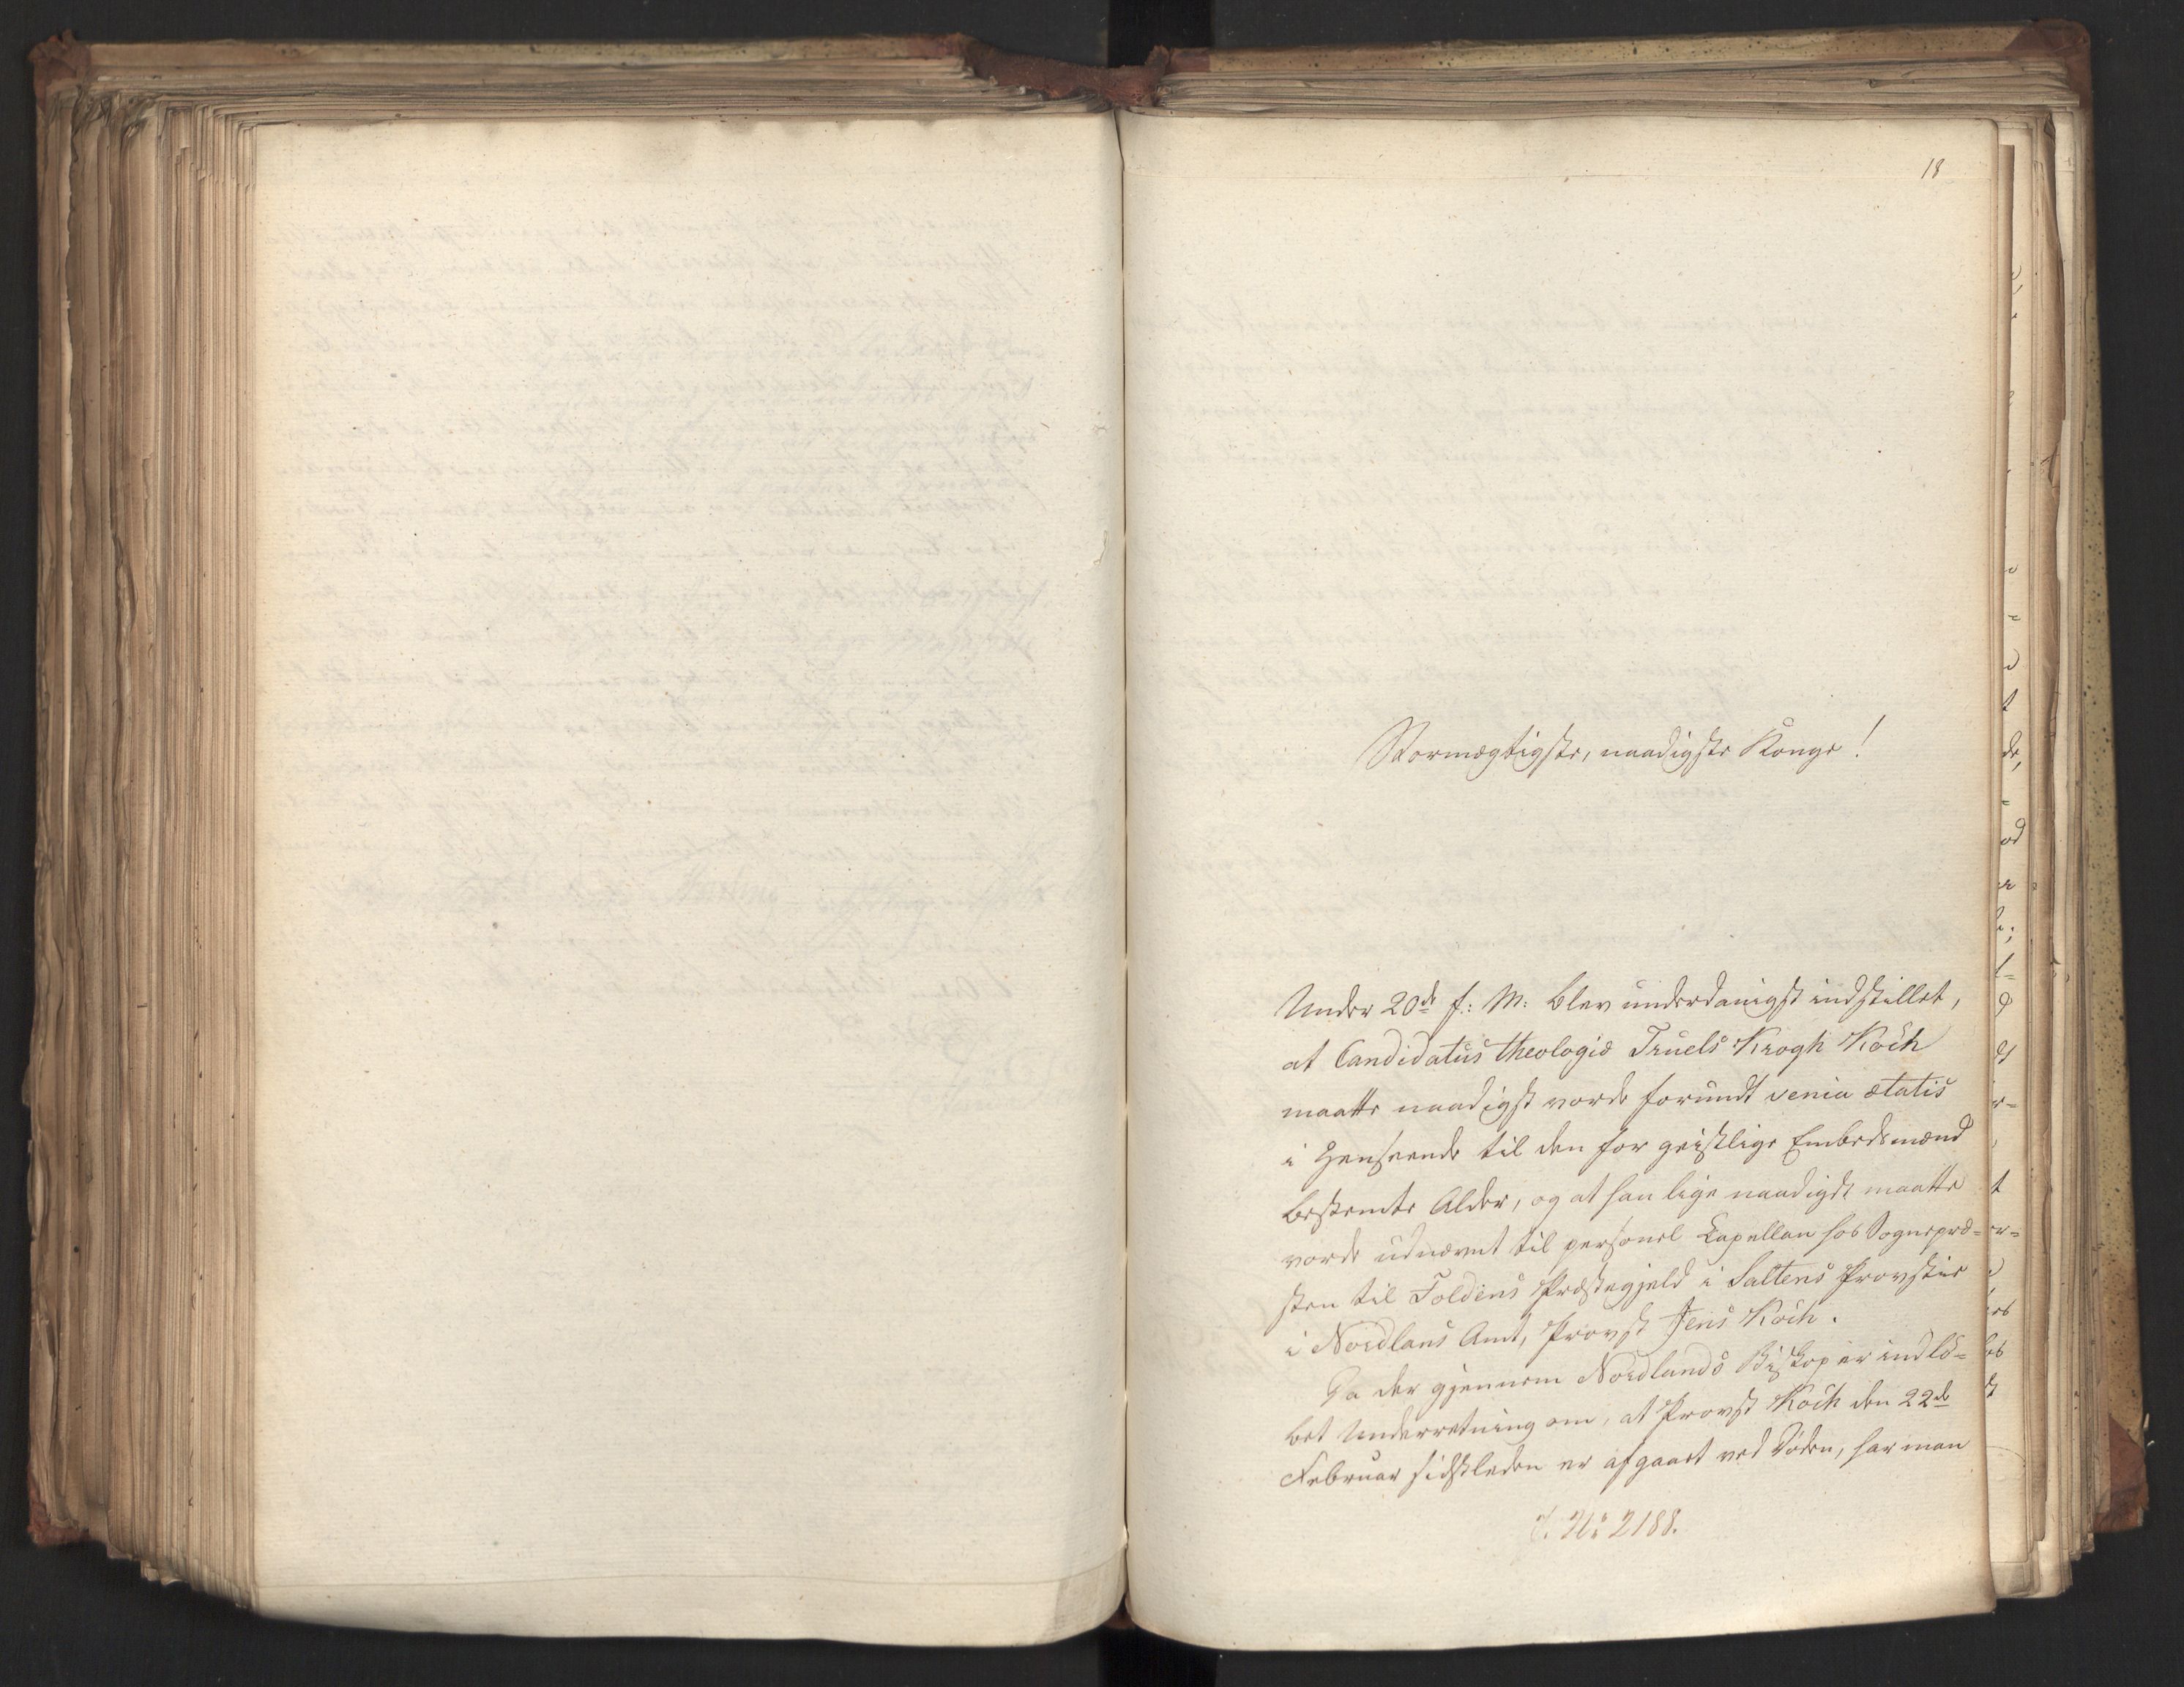 18
Stormægtigste, naadigste Konge!
Under 20de f: M: blev underdanigst indstillet,
at Candidatus theologiæ Truels Krogh Koch
maatte naadigst vorde forundt venia ætatis
i Henseende til den for geistlige Embedsmænd
bestemte Alder, og at han lige naadigst maatte
vorde udnævnt til personel Capellan hos Sognepræ-
sten til Foldens Præstegjeld i Saltens Provstie
i Nordlans Amt, Provst Jens Koch.
Da der gjennem Nordlands Biskop er indlö-
bet Underretning om, at Provst Koch den 22de
Februar sidstleden er afgaaet ved Döden, har man
J. No 2188.